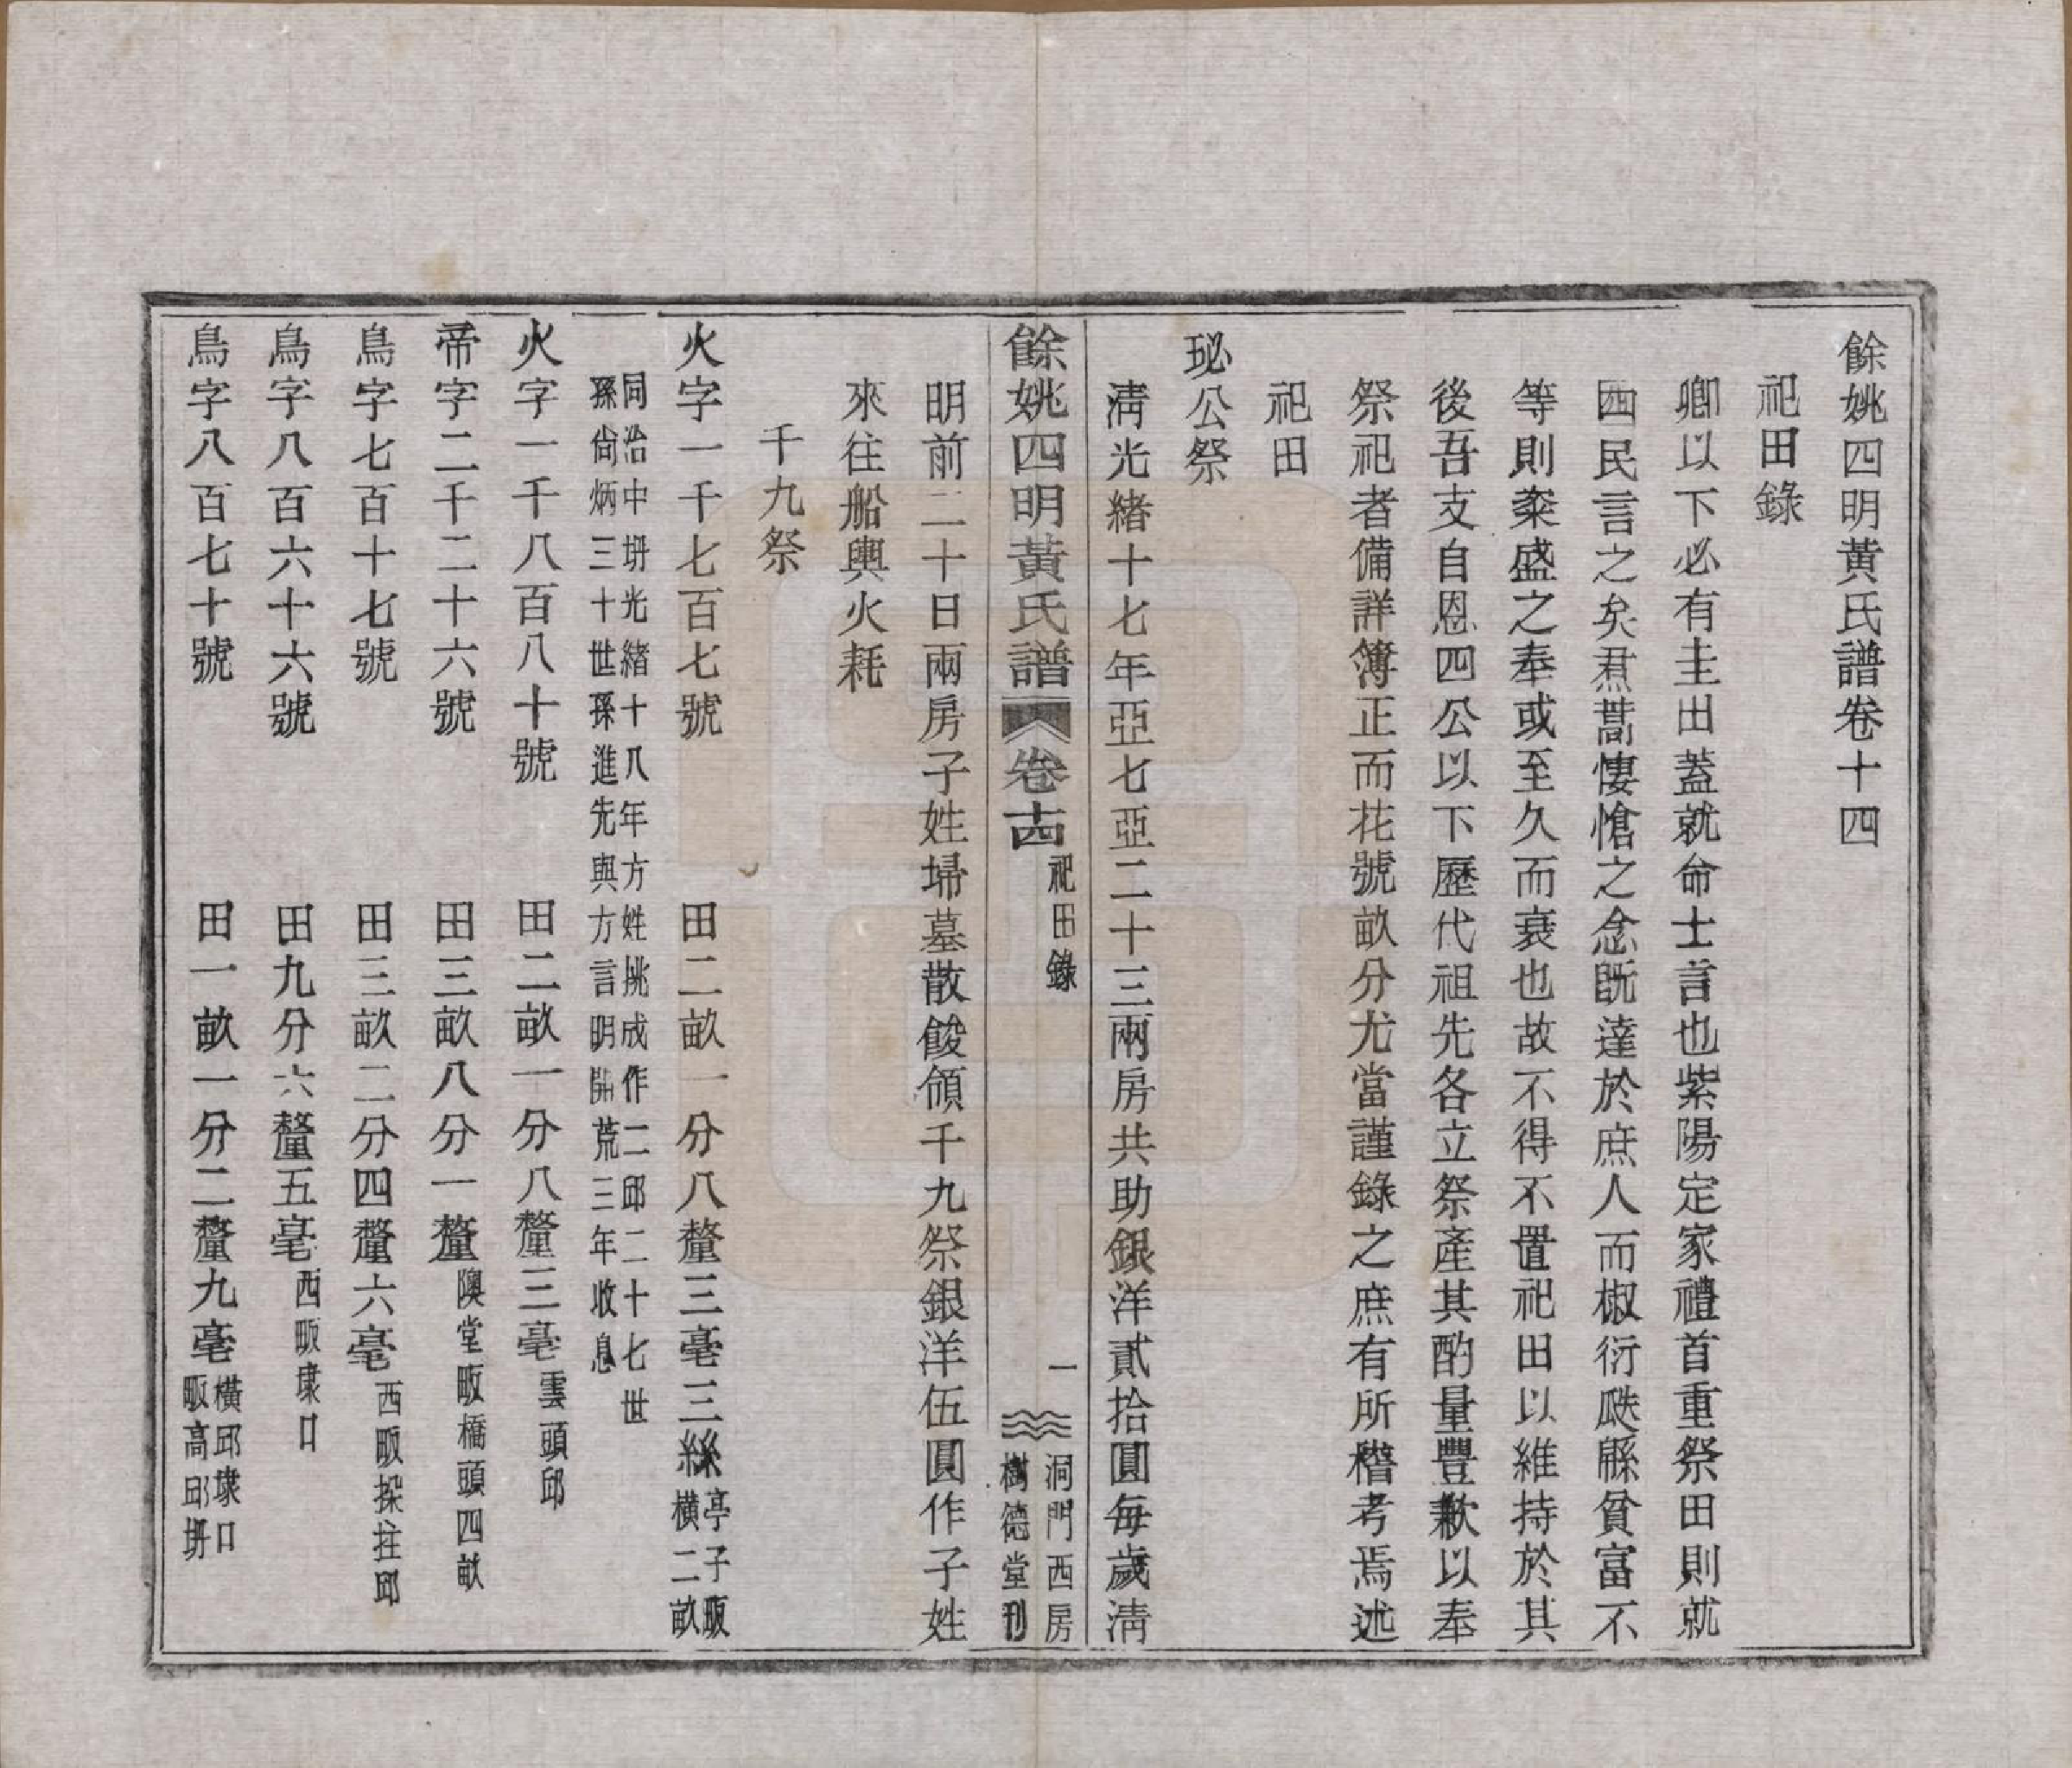 餘姚四明黃氏譜卷十四
祀田錄
卿以下必有圭田蓋就命士言也紫陽定家禮首重祭田則就
四民言之矣焄蒿悽愴之念旣達於庶人而椒衍瓞緜貧富不
等則粢盛之奉或至久而衰也故不得不置祀田以維持於其
後吾支自恩四公以下歷代祖先各立祭產其酌量豐歉以奉
祭祀者備詳簿正而花號畝分尤當謹錄之庶有所稽考焉述
祀田
珌公祭
淸光緖十七年亞七亞二十三兩房共助銀洋貳拾圓每歲淸
餘姚四明黃氏譜 卷十四 祀田錄 一 洞門西房
樹德堂刊
明前二十日兩房子姓埽墓散餕領千九祭銀洋伍圓作子姓
來往船輿火耗
千九祭
火字一千七百七號 田二畝一分八釐三毫三絲 亭子畈
橫二畝
同治中坍光緖十八年方姓挑成作二邱二十七世
孫尙炳三十世孫進先與方言明開荒三年收息
火字一千八百八十號 田二畝一分八釐三毫 雲頭邱
帝字二千二十六號 田三畝八分一釐 隩堂畈橋頭四畝
鳥字七百十七號 田三畝二分四釐六毫 西畈採拄邱
鳥字八百六十六號 田九分六釐五毫 西畈埭口
鳥字八百七十號 田一畝一分二釐九毫 橫邱埭口
畈高邱坍